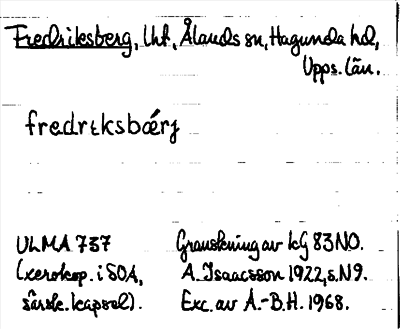 Fredriksberg, lht, Ålands sn, Hagunda hd,
Upps. län.
fredrɩksbǽrj
ULMA 737 Granskning av kG 83NO.
(xerokop. i SOA, A. Isaacsson 1922, s. N9.
särsk. kapsel). Exc. av A.-B.H. 1968.